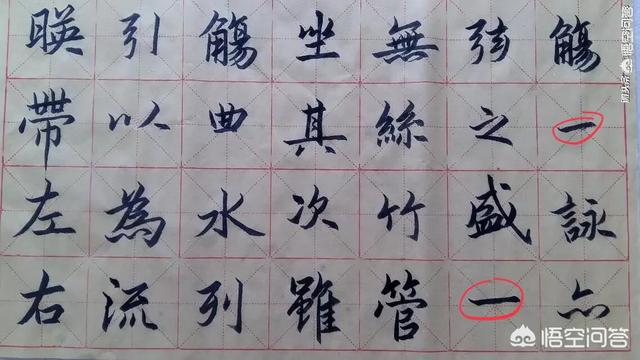 暎帶左右
引以為流
觴曲水列
坐其次雖
無絲竹管
弦之盛一
觴一詠亦
悟空问答
悟空问答